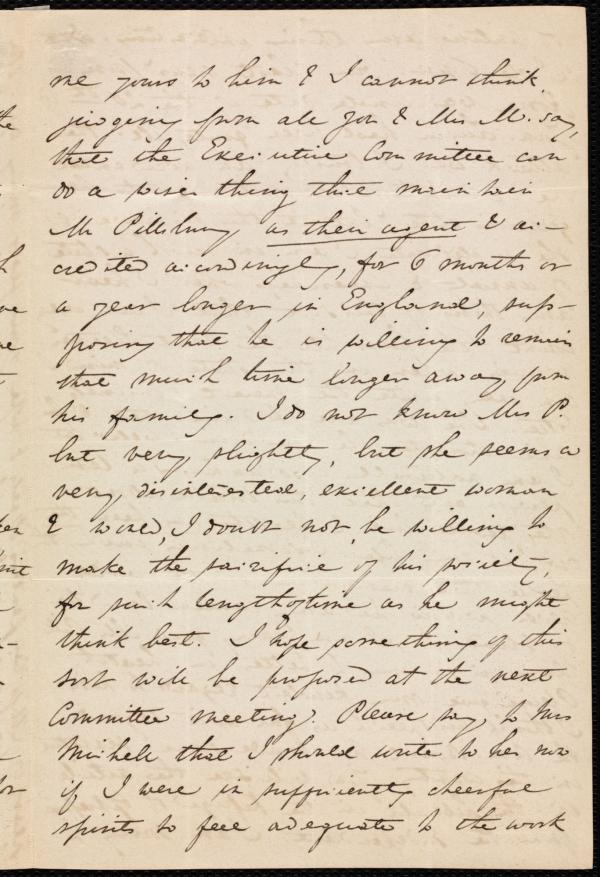 me yours to him & I cannot think,
judging from all you & Mrs M. say,
that the Executive Committee can
do a wiser thing than maintain
Mr Pillsbury as their agent & ac-
credited accordingly, for 6 months or
a year longer in England, sup-
posing that he is willing to remain
that much time longer away from
his family. I do not know Mrs P.
but very slightly, but she seems a
very disinterested, excellent woman
& would, I doubt not, be willing to
make the sacrifice of his society,
for such length of time as he might
think best. I hope something of this
sort will be proposed at the next
Committee meeting. Please say, to Mrs
Michell that I should write to her now
if I were in sufficiently cheerful
spirits to feel adequate to the work